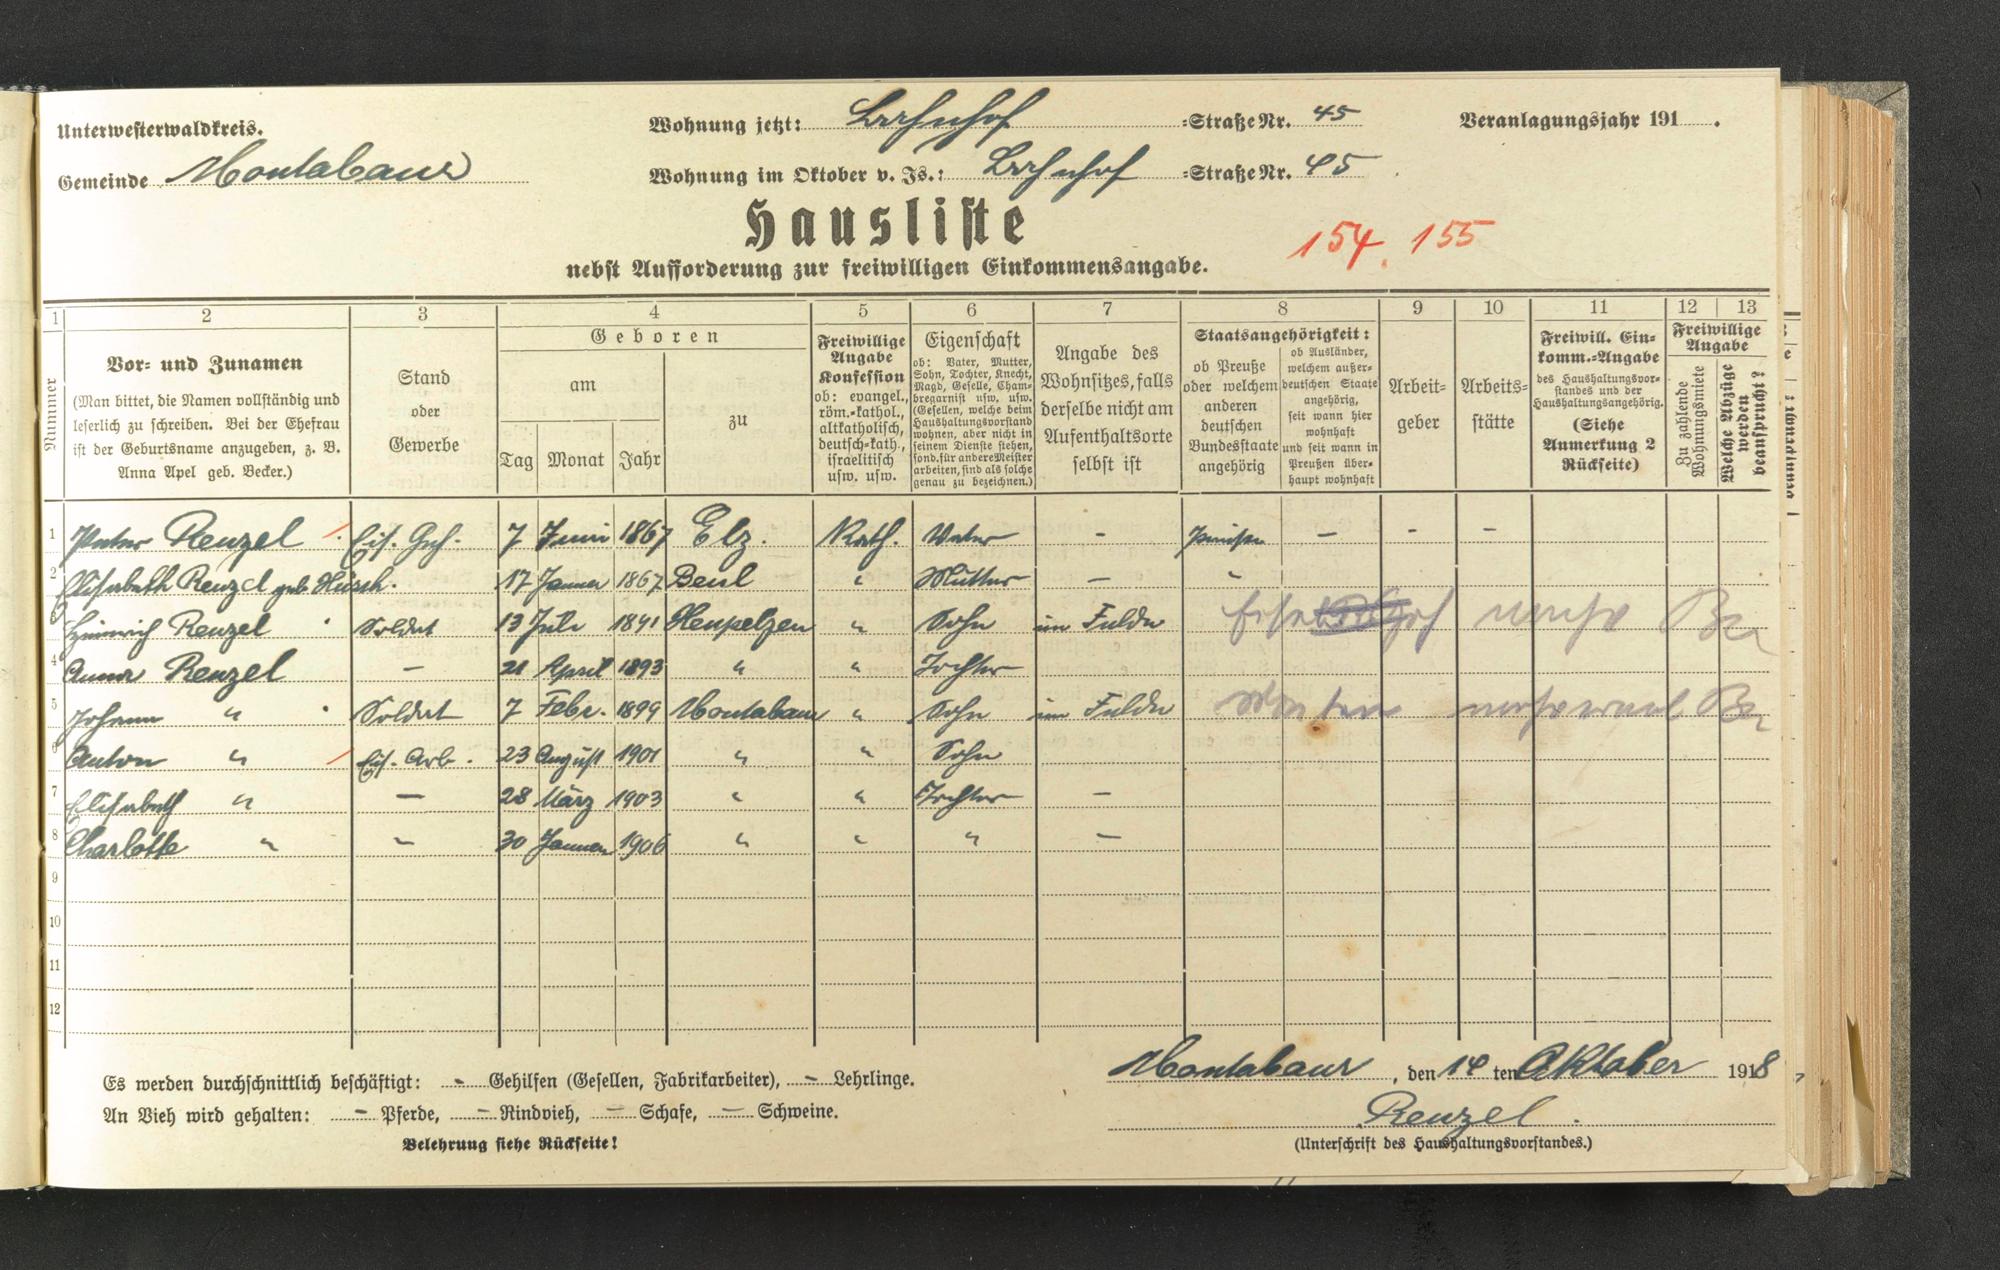 Unterwesterwaldkreis.
Wohnung jetzt: Bahnhof =Straße Nr. 45
Veranlagungsjahr 191 .
Gemeinde Montabaur
Wohnung im Oktober v. Js.: Bahnhof =Straße Nr. 45
Hausliste
154. 155
nebst Aufforderung zur freiwilligen Einkommensangabe.
1 2 3 4 5 6 7 8 9 10 11 12 13
Nummer
Vor- und Zunamen
(Man bittet, die Namen vollständig und
leserlich zu schreiben. Bei der Ehefrau
ist der Geburtsname anzugeben, z. B.
Anna Apel geb. Becker.)
Stand
oder
Gewerbe
Geboren
am
Tag Monat Jahr
zu
Freiwillige
Angabe
Konfession
ob: evangel.,
röm.-kathol.,
altkatholisch,
deutsch-kath.,
israelitisch
usw. usw.
Eigenschaft
ob: Vater, Mutter,
Sohn, Tochter, Knecht,
Magd, Geselle, Cham-
bregarnist usw. usw.
(Gesellen, welche beim
Haushaltungsvorstand
wohnen, aber nicht in
seinem Dienste stehen,
sond. für andere Meister
arbeiten, sind als solche
genau zu bezeichnen.)
Angabe des
Wohnsitzes, falls
derselbe nicht am
Aufenthaltsorte
selbst ist
Staatsangehörigkeit:
ob Preuße
oder welchem
anderen
deutschen
Bundesstaate
angehörig
ob Ausländer,
welchem außer-
deutschen Staate
angehörig,
seit wann hier
wohnhaft
und seit wann in
Preußen über-
haupt wohnhaft
Arbeit-
geber
Arbeits-
stätte
Freiwill. Ein-
komm.-Angabe
des Haushaltungsvor-
standes und der
Haushaltungsangehörig.
(Siehe
Anmerkung 2
Rückseite)
Freiwillige
Angabe
Zu zahlende
Wohnungsmiete
Welche Abzüge
werden
beansprucht?
1 Peter Renzel Eis. Geh. 7 Juni 1867 Elz. Kath. Vater - Preuße - - -
2 Elisabeth Renzel geb. 17 Januar 1867 " Mutter - "
3 Heinrich Renzel Soldat 13 Juli " Sohn im Felde
4 Anna Renzel - 21 April 1893 " " Tochter
5 Johann " Soldat 7 Febr. 1899 Montabaur " Sohn im Felde
6 Anton " Eis. Arb. 23 August 1901 " " Sohn
7 Elisabeth " - 28 März 1903 " " Tochter -
8 Charlotte " - 30 Januar 1906 " " " -
9
10
11
12
Es werden durchschnittlich beschäftigt: - Gehilfen (Gesellen, Fabrikarbeiter), - Lehrlinge.
An Vieh wird gehalten: - Pferde, - Rindvieh, - Schafe, - Schweine.
Belehrung siehe Rückseite!
Montabaur, den 14 ten Oktober 1918
Renzel.
(Unterschrift des Haushaltungsvorstandes.)